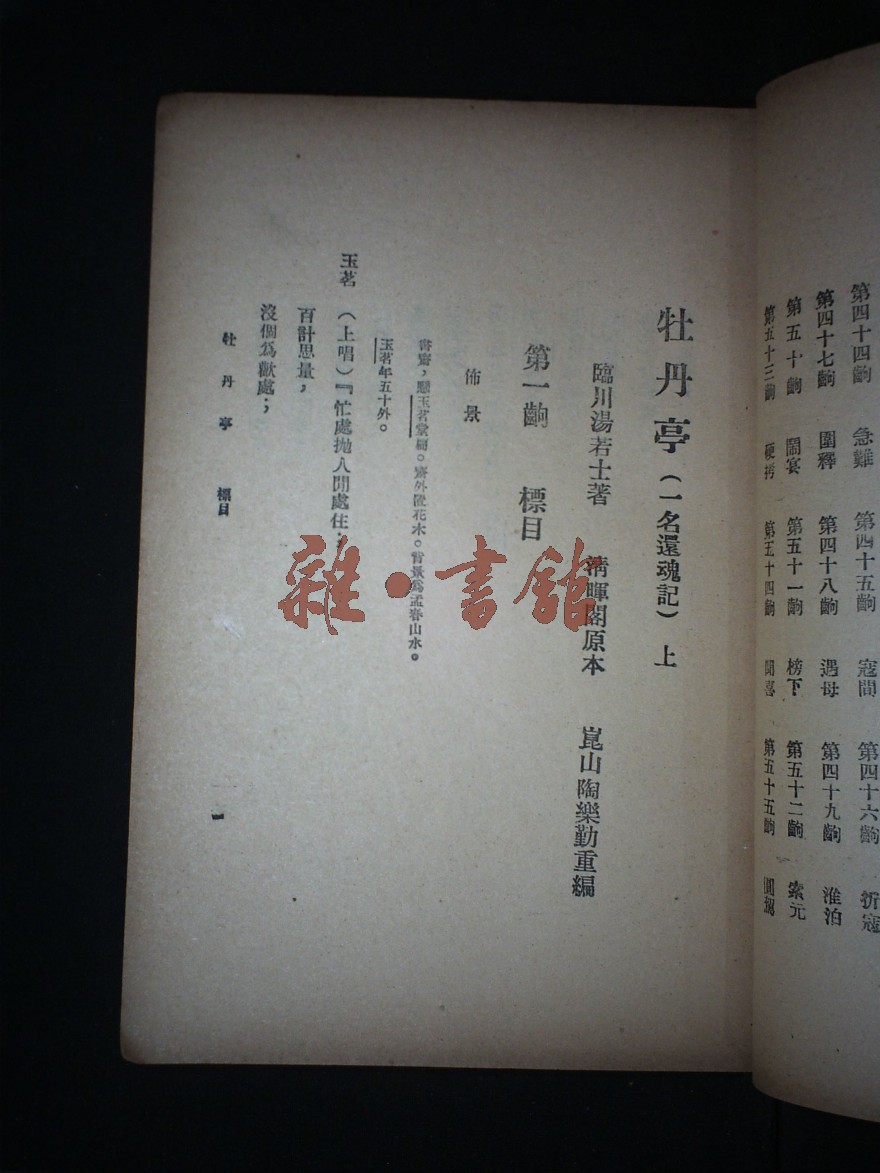 第四十四齣　急難　第四十五齣　寇間　第四十六齣　折寇
第四十七齣　圍釋　第四十八齣　遇母　第四十九齣　淮泊
第五十齣　鬧宴　第五十一齣　榜下　第五十二齣　索元
第五十三齣　硬拷　第五十四齣　聞喜　第五十五齣　圓駕
牡丹亭（一名還魂記）上
臨川湯若士著　清暉閣原本　崑山陶樂勤重編
第一齣　標目
佈景
書齋，懸玉茗堂。齋外置花木。背景爲孟春山水。
玉茗年五十外。
玉茗　（上唱）『忙處拋人閒處住；
百計思量，
沒個爲歡處；
牡丹亭　標目
一
雜·書館